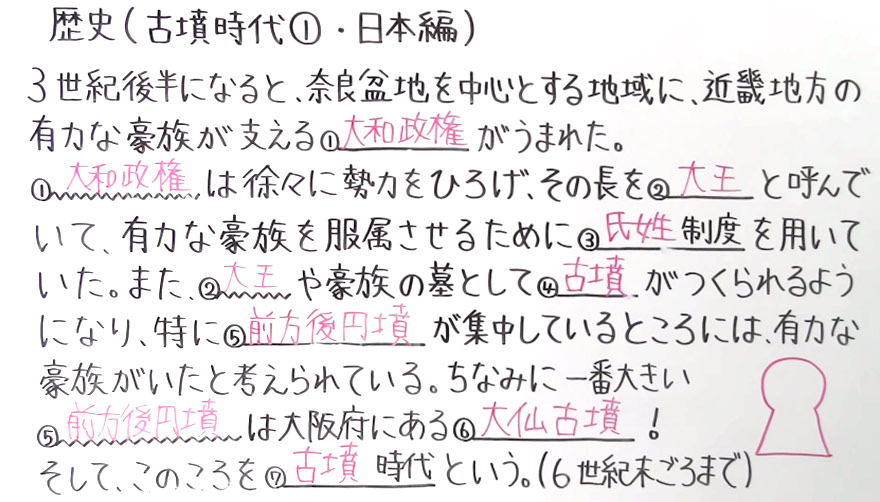 歴史(古墳時代①・日本編)
3世紀後半になると、奈良盆地を中心とする地域に、近畿地方の
有力な豪族が支える①大和政権がうまれた。
①大和政権は徐々に勢力をひろげ、その長を②大王と呼んで
いて、有力な豪族を服属させるために③氏姓制度を用いて
いた。また、②大王や豪族の墓として④古墳がつくられるよう
になり、特に⑤前方後円墳が集中しているところには、有力な
豪族がいたと考えられている。ちなみに一番大きい
⑤前方後円墳は大阪府にある⑥大仙古墳!
そして、このころを⑦古墳時代という。(6世紀末ごろまで)